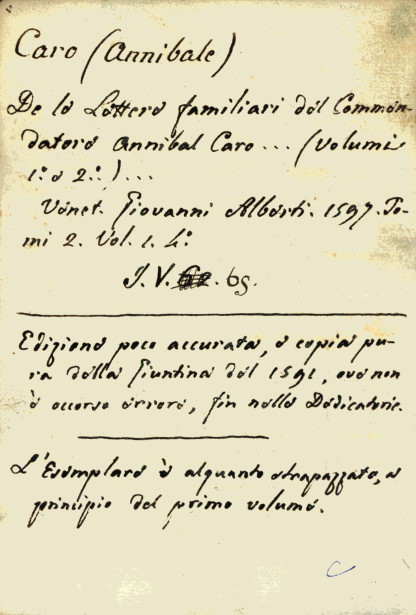 Caro (Annibale)
De le Lettere familiari del Commen-
datore Annibal Caro ... (Volume
1.º e 2.º) ...
Venet. Giovanni Alberti. 1597. To-
mi 2. Vol. 1. 4.º
J. V. 69.
Edizione poco accurata, e copia pu-
ra della Giuntina del 1591, ove non
è occorso errore, fin nelle Dedicatorie.
L'Esemplare è alquanto strapazzato, a
principio del primo volume.
C